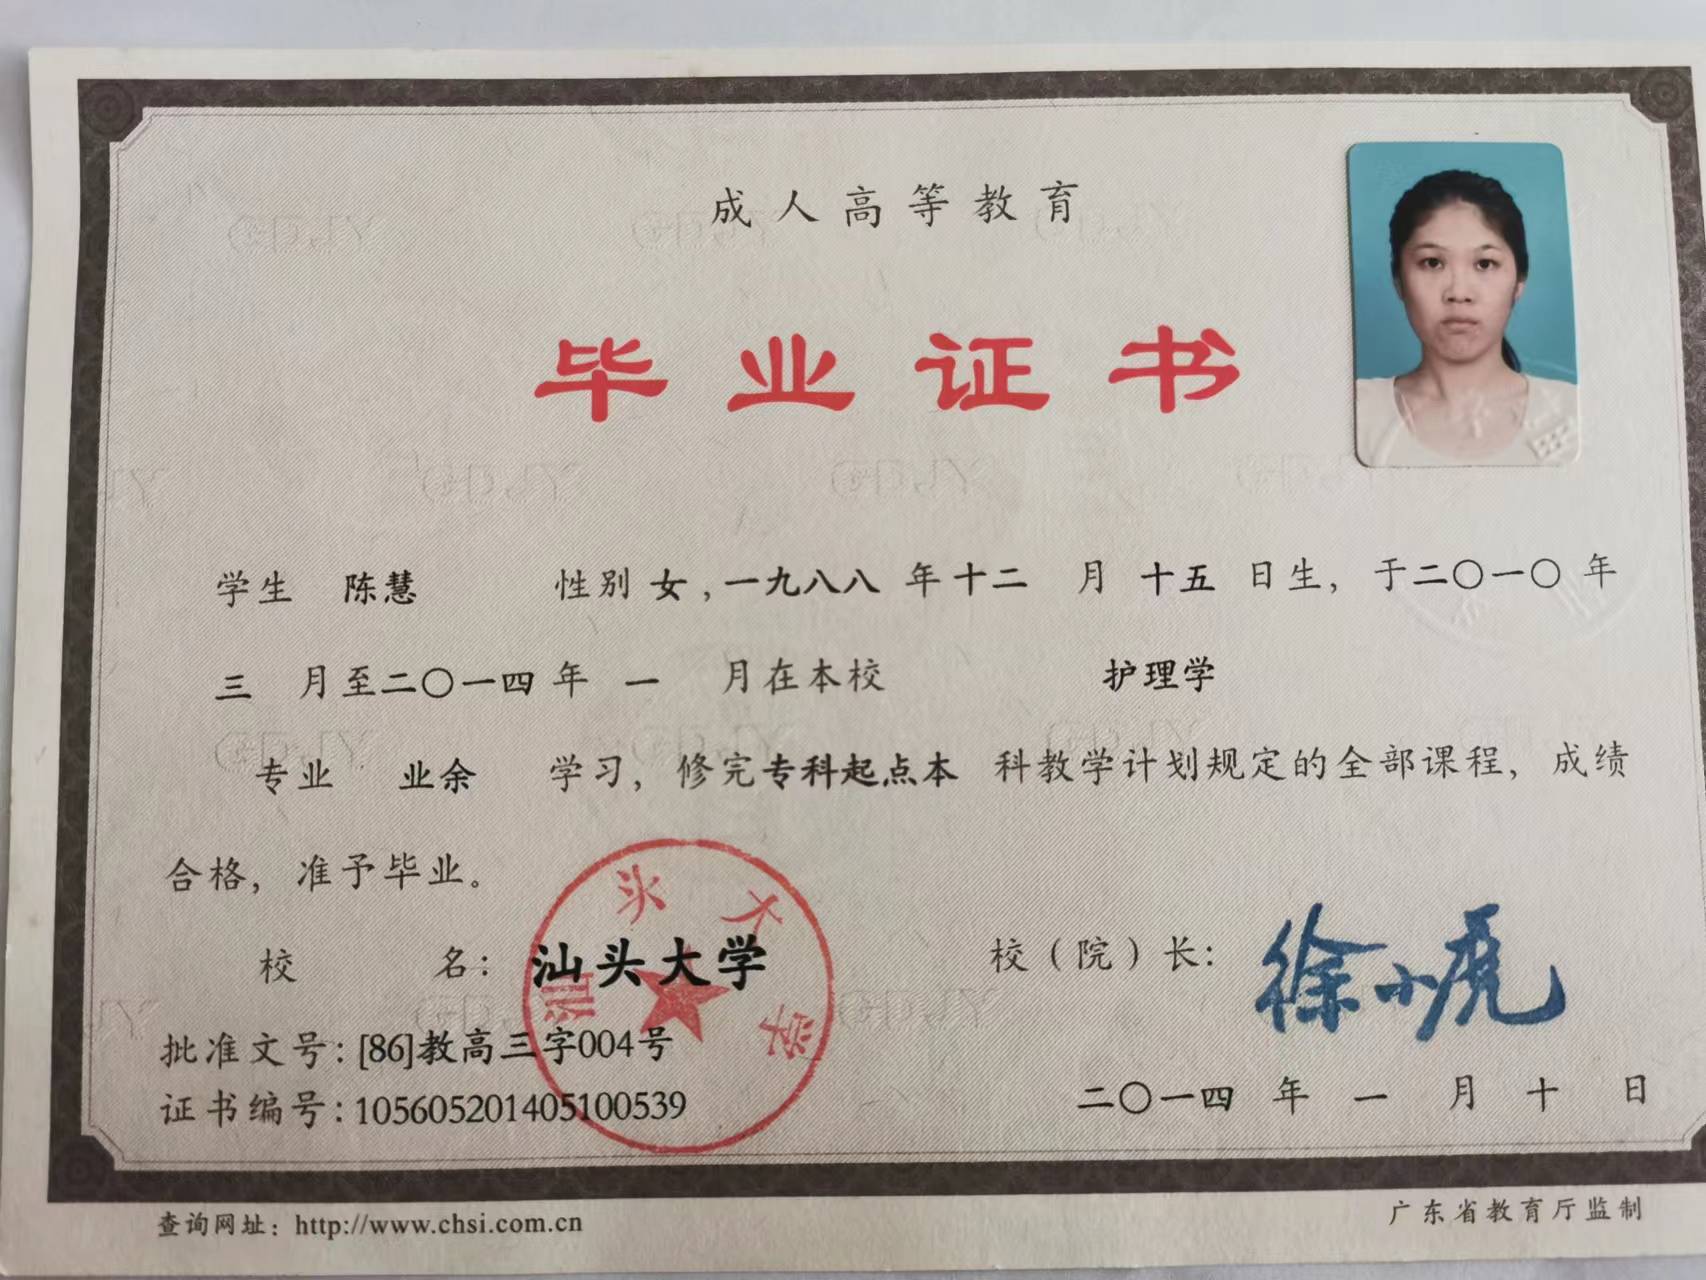 成人高等教育
毕业证书
学生 陈慧 性别 女，一九八八 年 十二 月 十五 日生，于二〇一〇 年
三 月至二〇一四 年 一 月在本校 护理学
专业 业余 学习，修完专科起点本 科教学计划规定的全部课程，成绩
合格，准予毕业。
校 名：汕头大学
汕头大学
校（院）长：徐小虎
批准文号：[86]教高三字004号
证书编号：105605201405100539
二〇一四 年 一 月 十 日
查询网址：http://www.chsi.com.cn
广东省教育厅监制